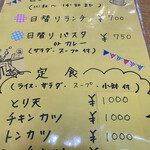 日替りランチ ¥700
日替りパスタ ¥750
or カレー
(サラダ、スープ付)
定食
(ライス・サラダ・スープ・小鉢付)
とり天 ¥1000
チキンカツ ¥1000
トンカツ ¥1000